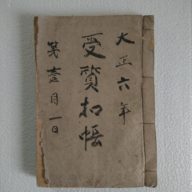 大正六年
受質扣帳
第壹月一日